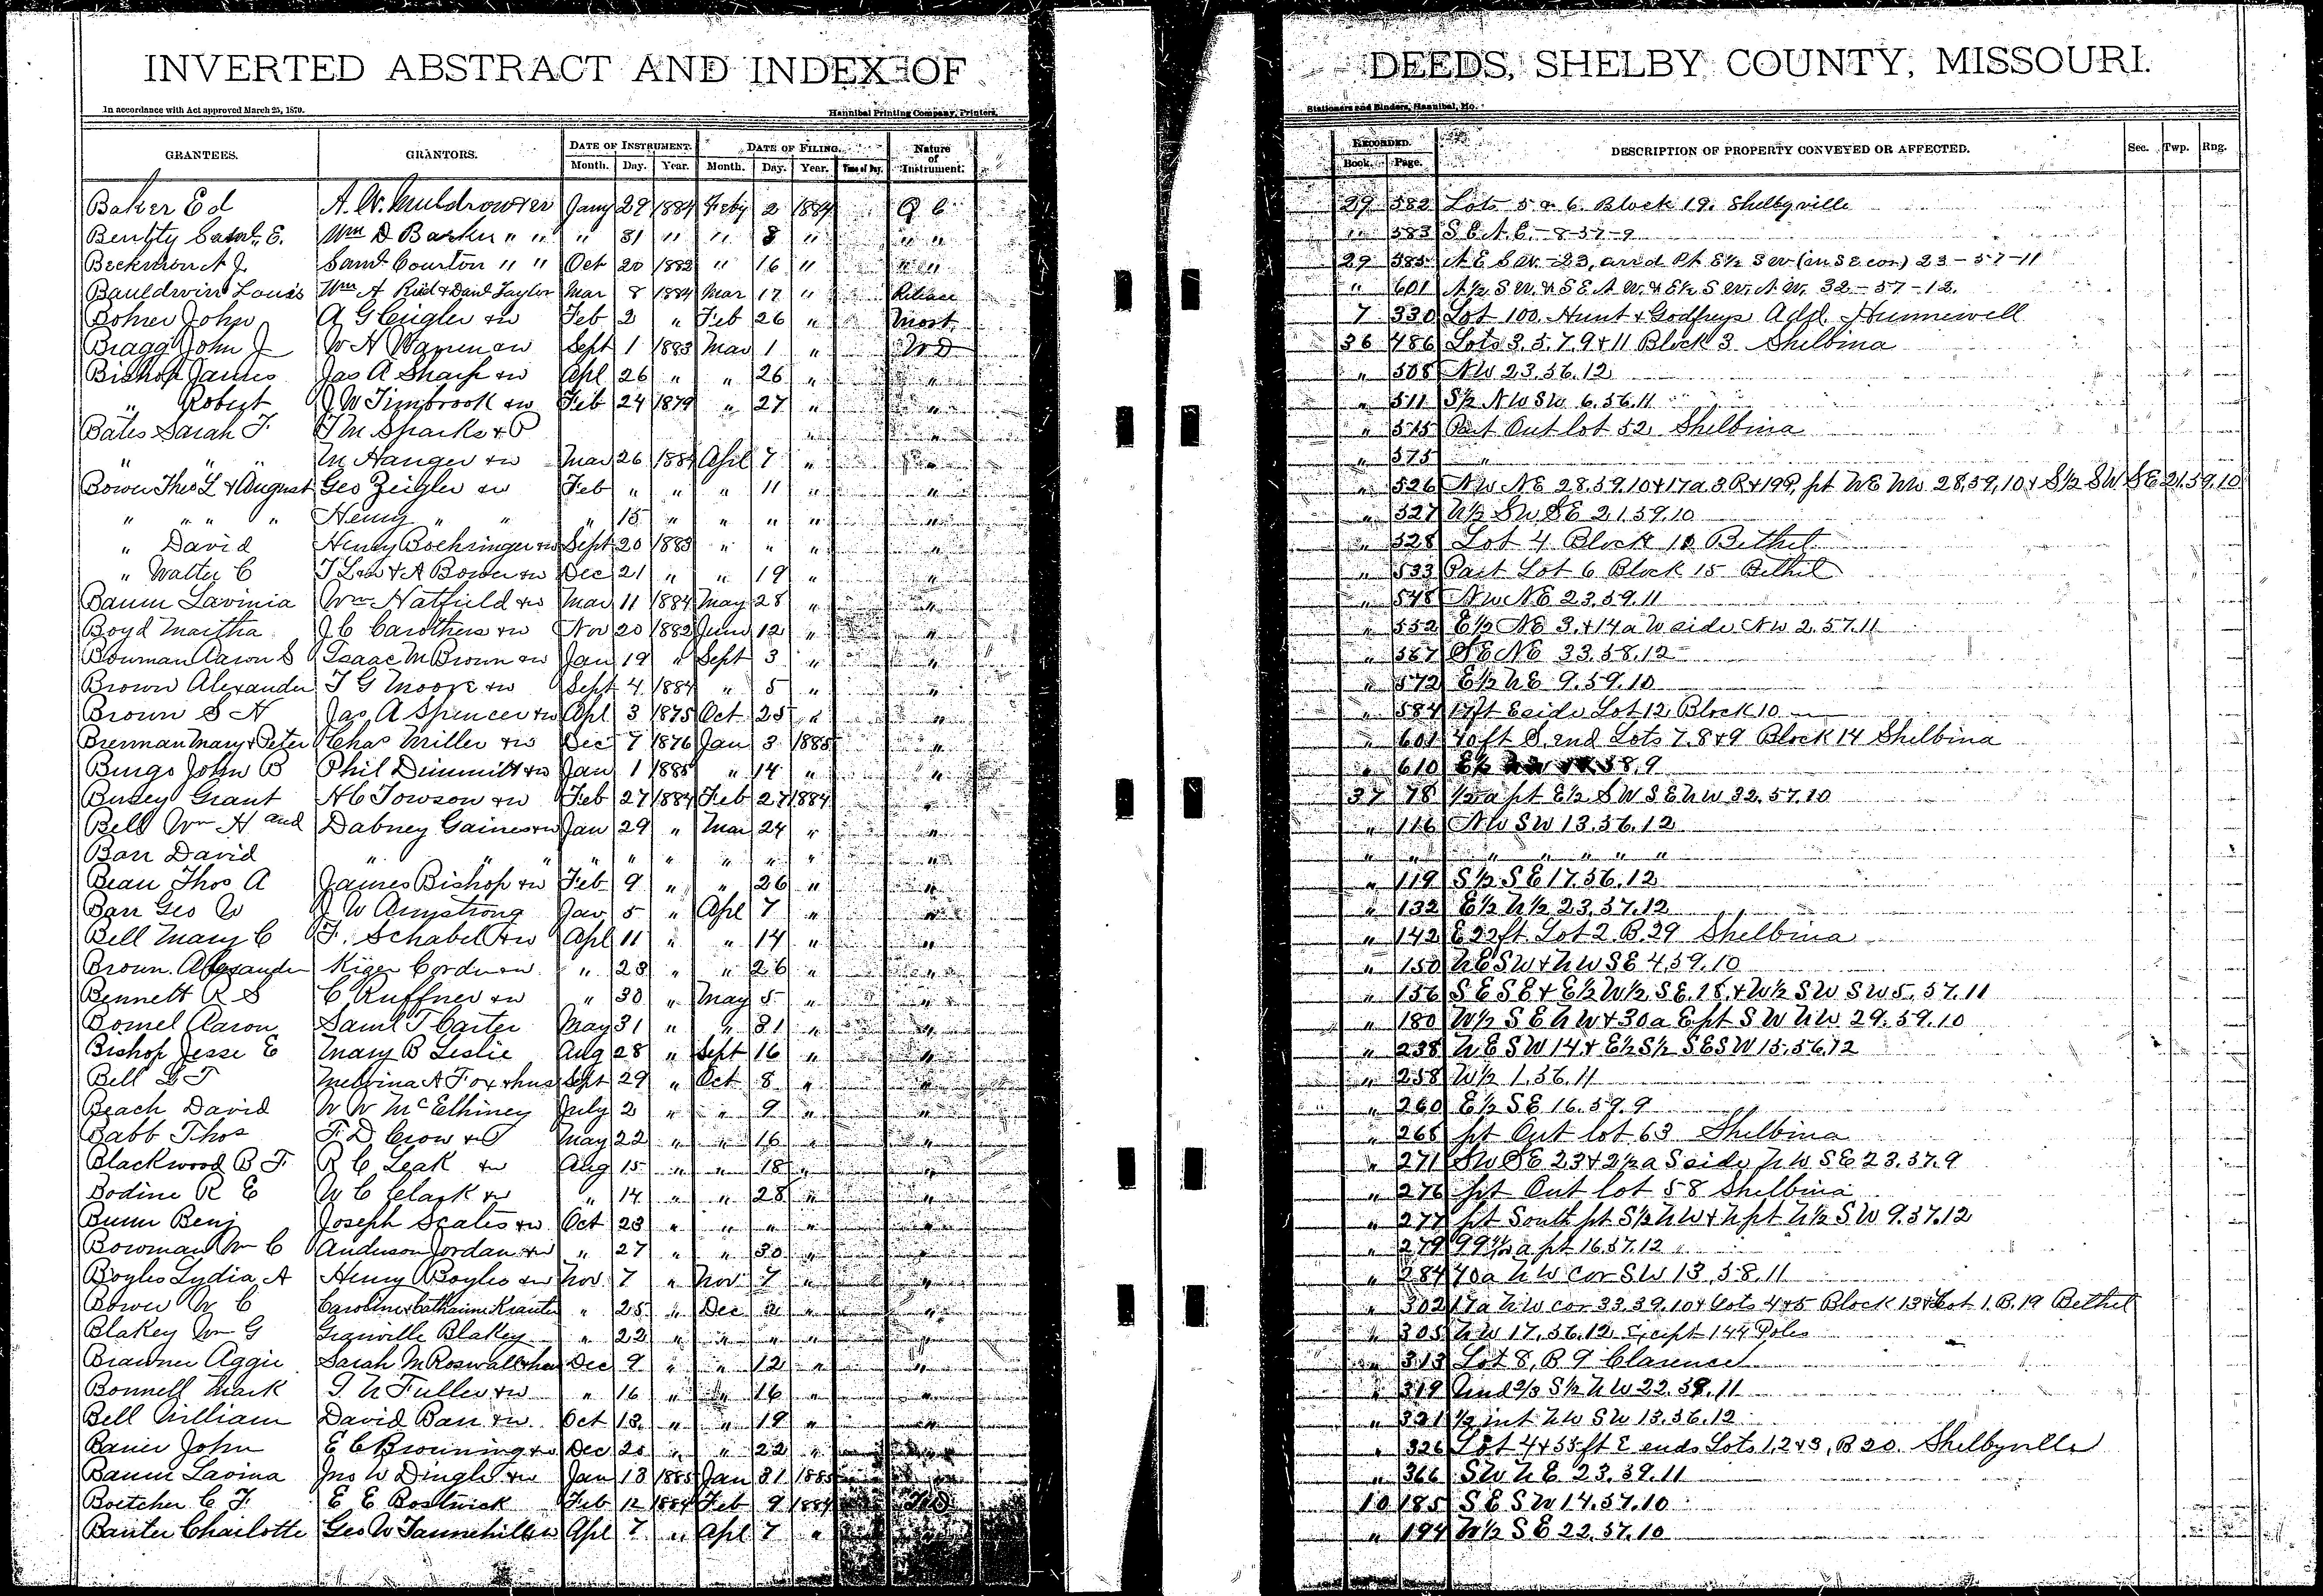 INVERTED ABSTRACT AND INDEX OF DEEDS, SHELBY COUNTY, MISSOURI.
In accordance with Act approved March 25, 1879. Hannibal Printing Company, Printers, Stationers and Binders, Hannibal, Mo.
GRANTEES. GRANTORS. DATE OF INSTRUMENT. DATE OF FILING. Nature of Instrument. RECORDED. DESCRIPTION OF PROPERTY CONVEYED OR AFFECTED. Sec. Twp. Rng.
Month. Day. Year. Month. Day. Year. Time of Day. Book. Page.
Baker Ed A. W. Muldrow Jany 29 1884 Feby 2 1884 Q C 29 582 Lots 5 & 6 Block 19. Shelbyville
Saml. E. Wm D Barker " " " 31 " " 8 " " " " 583 S E N. E. - 8-57-9
Beckman A J. Saml Courton " " Oct 20 1883 " 16 " " " 29 585 N E S W. - 23, and Pt E½ S W (in S E cor) 23-57-11
Bauldwin Louis Wm A Reid & Danl Taylor Mar 8 1884 Mar 17 " Release " 601 N½ S W. & S E N W. & E½ S W. N W. 32-57-12.
Bohrer John A G Ceigler & w Feb 2 " Feb 26 " Mort 7 330 Lot 100, Hunt & Godfreys Add. Hunnewell
Bragg John J W H Warren & w Sept 1 1883 Mar 1 " W D 36 486 Lots 3, 5, 7, 9 & 11 Block 3 Shelbina
Bishop James Jas A Sharp & w Apl 26 " " 26 " " " 508 N W 23, 56, 12
" Robert J W Timbrook & w Feb 24 1879 " 27 " " " 511 S½ N W S W 6, 56, 11
Bates Sarah F. T M Sparks & P " " " 515 Part Out lot 52, Shelbina
" " " M Hanger & w Mar 26 1884 Apl 7 " " " 575 "
Bower Theo L & August Geo Zeigler & w Feb " " " 11 " " " 526 N W N E 28, 59, 10 & 17 a 3 R & 19 P, pt N E N W 28, 59, 10 & S½ S W S E 21, 59, 10
" " " " Henry " " " 15 " " " " " " 527 N½ S W S E 21, 59, 10
" David Henry Boehringer & w Sept 20 1883 " " " " " 528 Lot 4 Block 10 Bethel
" Walter C T L & w & A Bower & w Dec 21 " " 19 " " " 533 Part Lot 6 Block 15 Bethel
Baum Lavinia Wm Hatfield & w Mar 11 1884 May 28 " " " 548 N W N E 23, 59, 11
Boyd Martha J C Carothers & w Nov 20 1882 June 12 " " " 552 E½ N E 3, & 14 a W side N W 2, 57, 11
Bowman Aaron S Isaac M Brown & w Jan 19 " Sept 3 " " " 567 S E N E 33, 58, 12
Brown Alexander T G Moore & w Sept 4 1884 " 5 " " " 572 E½ N E 9, 59, 10
Brown S H Jas A Spencer & w Apl 3 1875 Oct 25 " " " 584 17 ft E side Lot 12, Block 10
Brennan Mary & Peter Chas Miller & w Dec 7 1876 Jan 3 1885 " " 601 40 ft S. end Lots 7, 8 & 9 Block 14 Shelbina
John B Phil Dimmitt & w Jan 1 1885 " 14 " " " 610 E½ 58, 9
Busey Grant H C Towson & w Feb 27 1884 Feb 27 1884 " 37 78 ½ a pt E½ S W S E N W 32, 57, 10
Bell Wm H and Dabney Gaines & w Jan 29 " Mar 24 " " " 116 N W S W 13, 56, 12
Barr David " " " " " " " " " " " " " " " " "
Bean Thos A James Bishop & w Feb 9 " " 26 " " " 119 S½ S E 17, 56, 12
Barr Geo W J W Armstrong Jan 5 " Apl 7 " " " 132 E½ N½ 23, 57, 12
Bell Mary C F. Schabel & w Apl 11 " " 14 " " " 142 E 22 ft. Lot 2, B. 29 Shelbina
Brown Alexander Kiger Corder & w " 23 " " 26 " " " 150 N E S W & N W S E 4, 59, 10
Bennett R S C Ruffner & w " 30 " May 5 " " " 156 S E S E & E½ W½ S E, 18, & W½ S W S W 5, 57, 11
Bomel Aaron Saml T Carter May 31 " " 31 " " " 180 W½ S E N W & 30 a E pt S W N W 29, 59, 10
Bishop Jesse E Mary B Leslie Aug 28 " Sept 16 " " " 238 N E S W 14 & E½ S½ S E S W 15, 56, 12
Bell L T Melvina A Fox & hus Sept 29 " Oct 8 " " " 258 W½ 1, 56, 11
Beach David W W McElhiney July 2 " " 9 " " " 260 E½ S E 16, 59, 9
Babb Thos F. D. Crow & P May 22 " " 16 " " " 265 pt Out lot 63 Shelbina
Blackwood B F. R C Leak & w Aug 15 " " 18 " " " 271 S W S E 23 & 2½ a S side N W S E 23, 57, 9
Bodine R E W C Clark & w " 14 " " 28 " " " 276 pt Out lot 58 Shelbina
Bunn Benj Joseph Scates & w Oct 23 " " " " " " 277 pt South pt S½ N W & N pt N½ S W 9, 57, 12
Bowman Wm C Anderson Jordan & w " 27 " " 30 " " " 279 99 a pt 16, 57, 12
Boyles Lydia A Henry Boyles & w Nov 7 " Nov 7 " " " 284 40 a N W cor S W 13, 58, 11
Bower W C Caroline & Catharine Krauter " 25 " Dec 2 " " " 302 17 a N W cor 33, 59, 10 & Lots 4 & 5 Block 13 & Lot 1, B. 19 Bethel
Blakey Wm G Granville Blakey " 22 " " " " " " 305 N W 17, 56, 12 except 144 Poles
Brawner Aggie Sarah M Roswall & hus Dec 9 " " 12 " " " 313 Lot 8, B 9 Clarence
Bonnell Mark T. N Fuller & w " 16 " " 16 " " " 319 Und 2/3 S½ N W 22, 58, 11
Bell William David Barr & w Oct 13 " " 19 " " " 321 ½ int N W S W 13, 56, 12
Baner John E C Browning & w Dec 20 " " 22 " " " 326 Lot 4 & 55 ft E ends Lots 1, 2 & 3, B 20. Shelbyville
Baum Lavina Jno W Dingle & w Jan 13 1885 Jan 31 1885 " " 366 S W N E 23, 59, 11
Boetcher C F. E E Bostwick Feb 12 1884 Feb 9 1884 T D 10 185 S E S W 14, 57, 10
Banter Charlotte Geo W Tannehill & w Apl 7 " Apl 7 " " 194 W½ S E 22, 57, 10